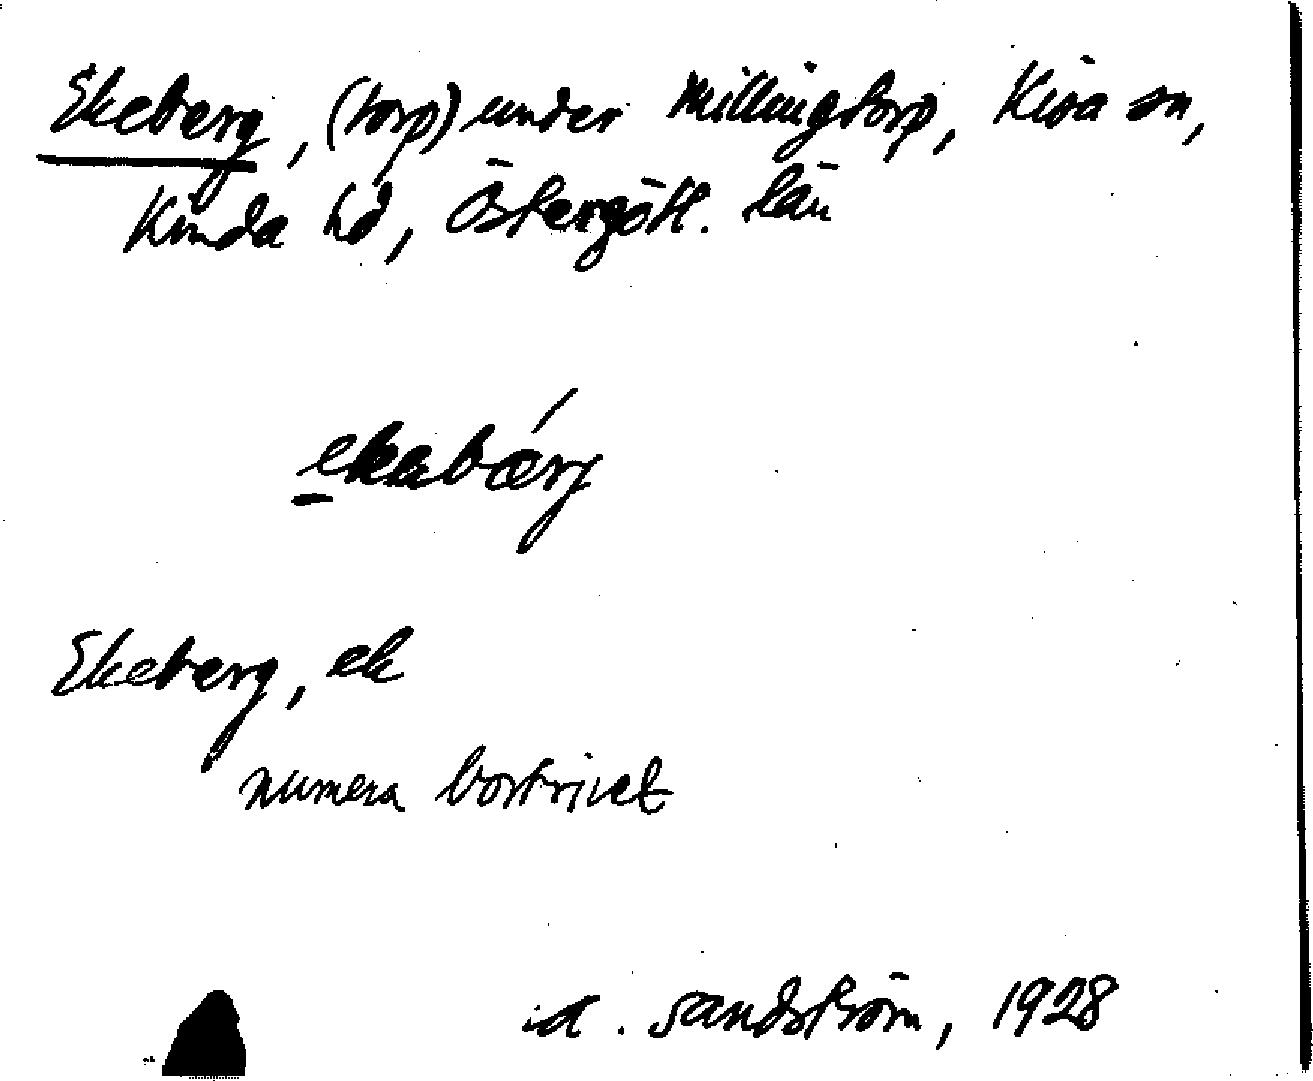 Ekeberg, (torp) under Millingtorp, Kisa sn,
Kinda hd, Östergötl. län
ekabærj
Ekeberg, ek
numera bortrivet
A. Sandström, 1928